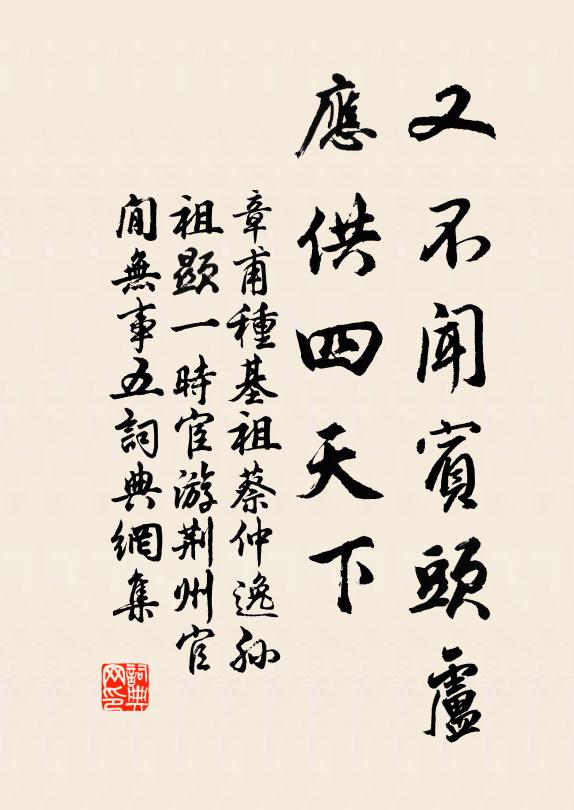 又不聞賓頭盧
應供四天下
章甫種基祖蔡仲逸孙
祖顯一時宦游荆州官
閒無事五詞典網集
詞典
网印